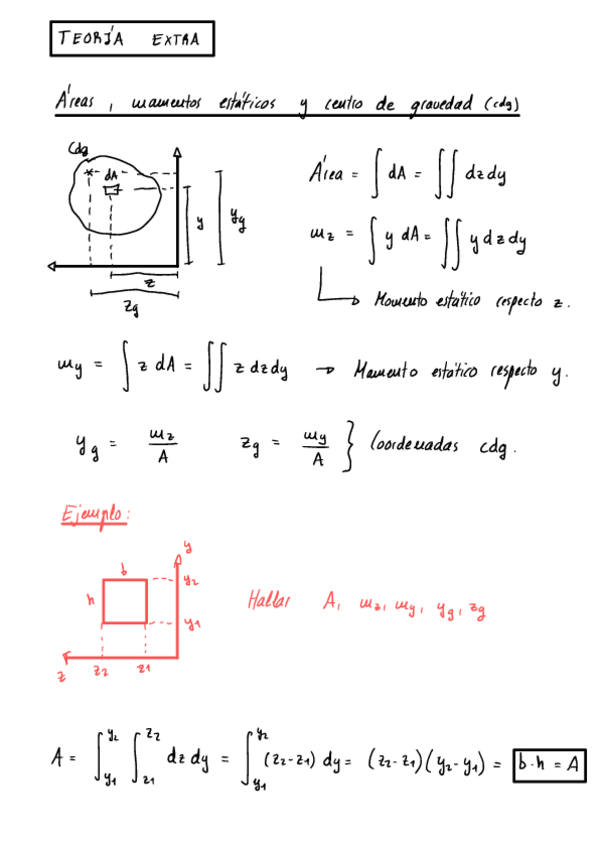 TEORÍA EXTRA
Áreas, momentos estáticos y centro de gravedad (cdg)
Cdg
dA
y
yg
z
zg
Área = ∫ dA = ∬ dzdy
mz = ∫ y dA = ∬ y dzdy
↳ Momento estático respecto z.
my = ∫ z dA = ∬ z dzdy → Momento estático respecto y.
yg = mz/A zg = my/A } Coordenadas cdg.
Ejemplo:
y
b
y2
h
y1
z z2 z1
Hallar A, mz, my, yg, zg
A = ∫_{y1}^{y2} ∫_{z1}^{z2} dz dy = ∫_{y1}^{y2} (z2-z1) dy = (z2-z1)(y2-y1) = b·h = A